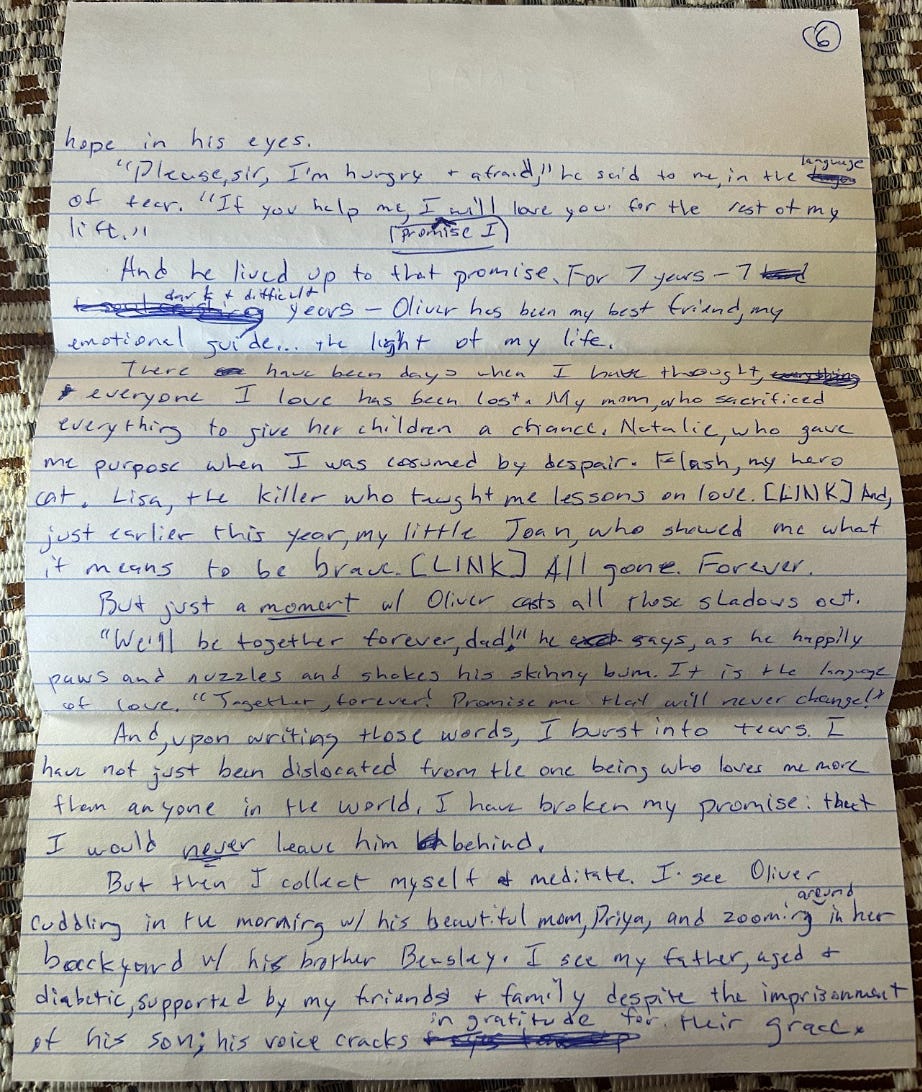 6
hope in his eyes.
"Please, sir, I'm hungry + afraid," he said to me, in the language
of fear. "If you help me, I promise I will love you for the rest of my
life."
And he lived up to that promise. For 7 years – 7
dark + difficult years – Oliver has been my best friend, my
emotional guide... the light of my life.
There have been days when I have thought,
everyone I love has been lost. My mom, who sacrificed
everything to give her children a chance. Natalie, who gave
me purpose when I was cosumed by despair. Flash, my hero
cat. Lisa, the killer who taught me lessons on love. [LINK] And,
just earlier this year, my little Joan, who showed me what
it means to be brave. [LINK] All gone. Forever.
But just a moment w/ Oliver casts all those shadows out.
"We'll be together forever, dad!" he says, as he happily
paws and nuzzles and shakes his skinny bum. It is the language
of love. "Together, forever! Promise me that will never change!"
And, upon writing those words, I burst into tears. I
have not just been dislocated from the one being who loves me more
than anyone in the world. I have broken my promise: that
I would never leave him behind.
But then I collect myself + meditate. I see Oliver
cuddling in the morning w/ his beautiful mom, Priya, and zooming around in her
backyard w/ his brother Beasley. I see my father, aged +
diabetic, supported by my friends + family despite the imprisonment
of his son; his voice cracks in gratitude for their grace.